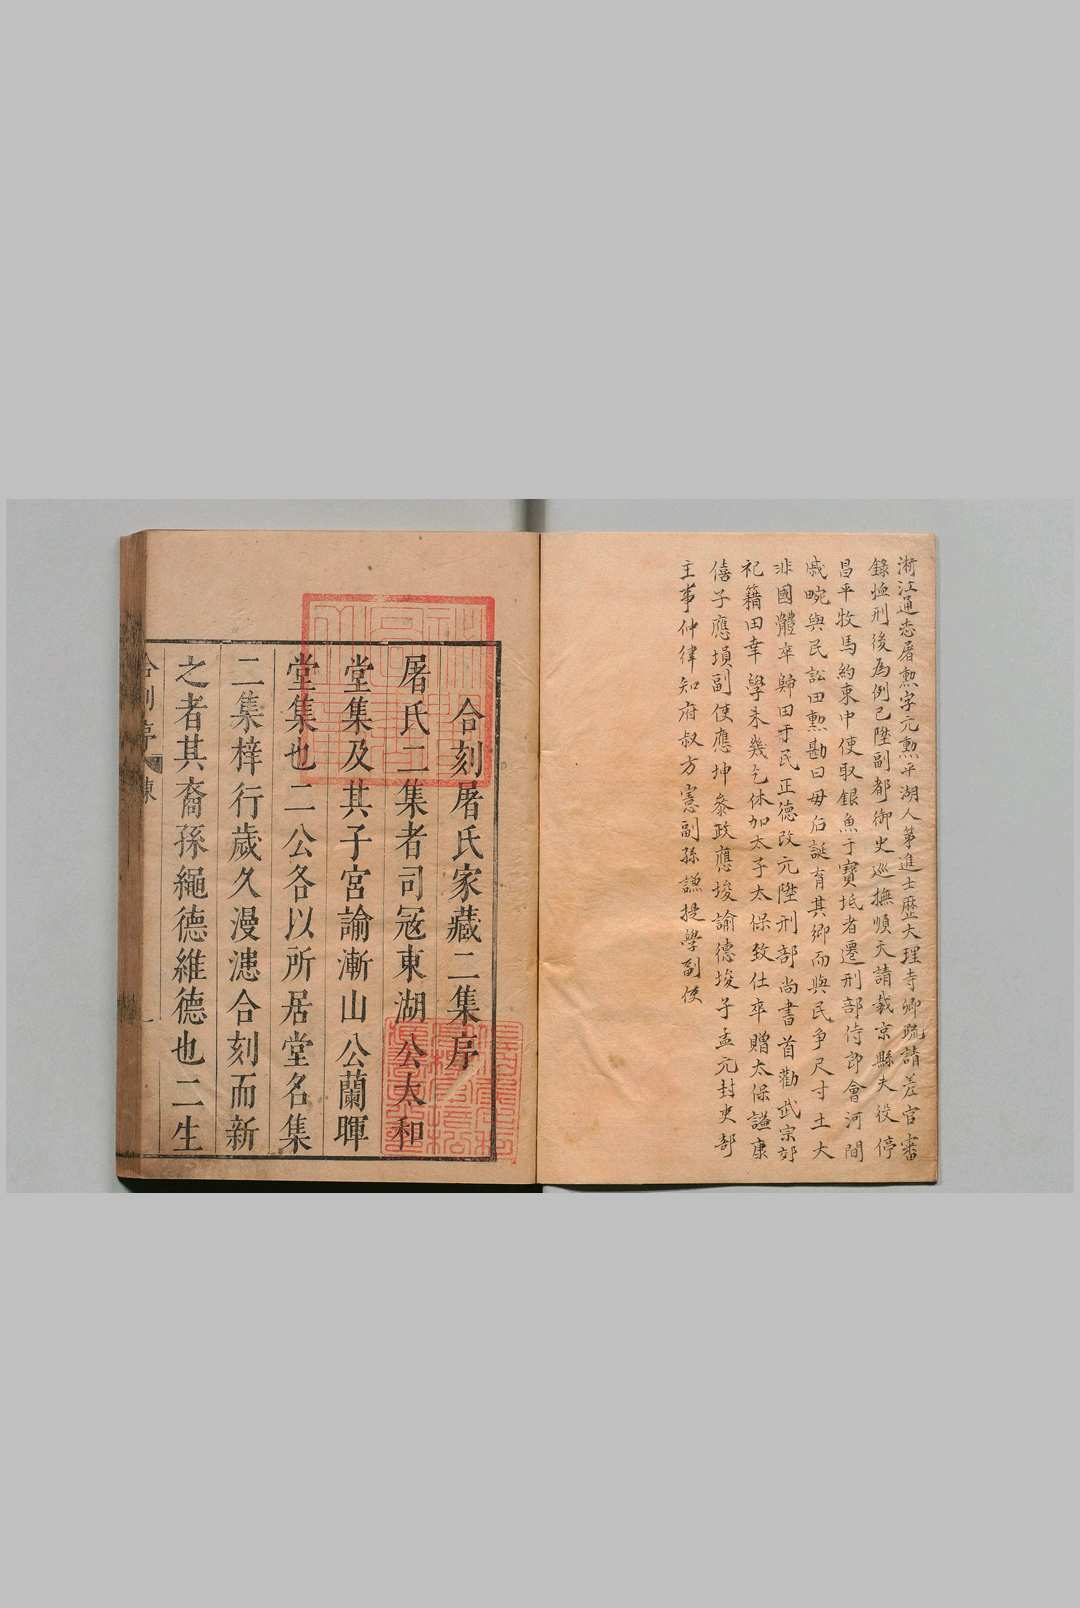 浙江通志屠勲字元勲平湖人第進士歷大理寺卿疏請差官審
錄恤刑後為例已陞副都御史巡撫順天請裁京縣夫役停
昌平牧馬約束中使取銀魚于寶坻者遷刑部侍郎會河間
戚畹與民訟田勲勘曰毋后誕育其鄉而與民爭尺寸土大
非國體卒歸田于民正德改元陞刑部尚書首勸武宗郊
祀籍田幸學未幾乞休加太子太保致仕卒贈太保謚康
僖子應塤副使應坤叅政應埈諭德埈子孟元封吏部
主事仲律知府叔方憲副孫謙提學副使
合刻屠氏家藏二集序
屠氏二集者司寇東湖公太和
堂集及其子宮諭漸山公蘭暉
堂集也二公各以所居堂名集
二集梓行歲久漫漶合刻而新
之者其裔孫繩德維德也二生
合刻序
一